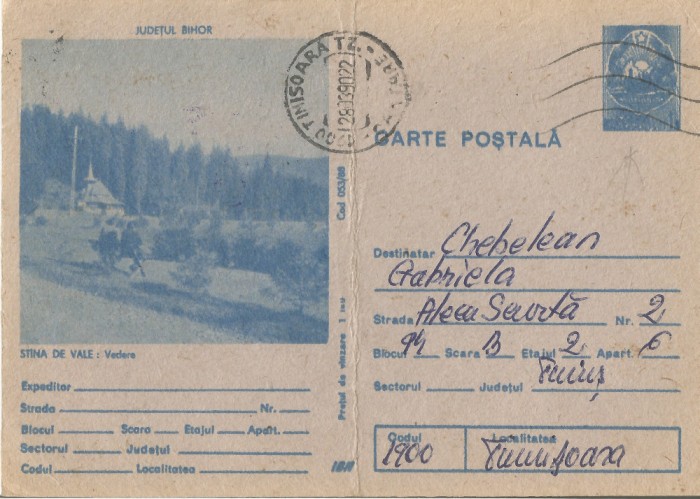 JUDEȚUL BIHOR
STÎNA DE VALE : Vedere
Expeditor
Strada Nr.
Blocul Scara Etajul Apart.
Sectorul Județul
Codul Localitatea
Cod 053/88
Prețul de vînzare 1 leu
TIMIȘOARA TZ.
28.03.90.22
CARTE POȘTALĂ
Destinatar Chebelean
Gabriela
Strada Aleea Scurtă Nr. 2
Blocul 94 Scara B Etajul 2 Apart. 6
Sectorul Județul Timiș
Codul Localitatea
1900 Timișoara